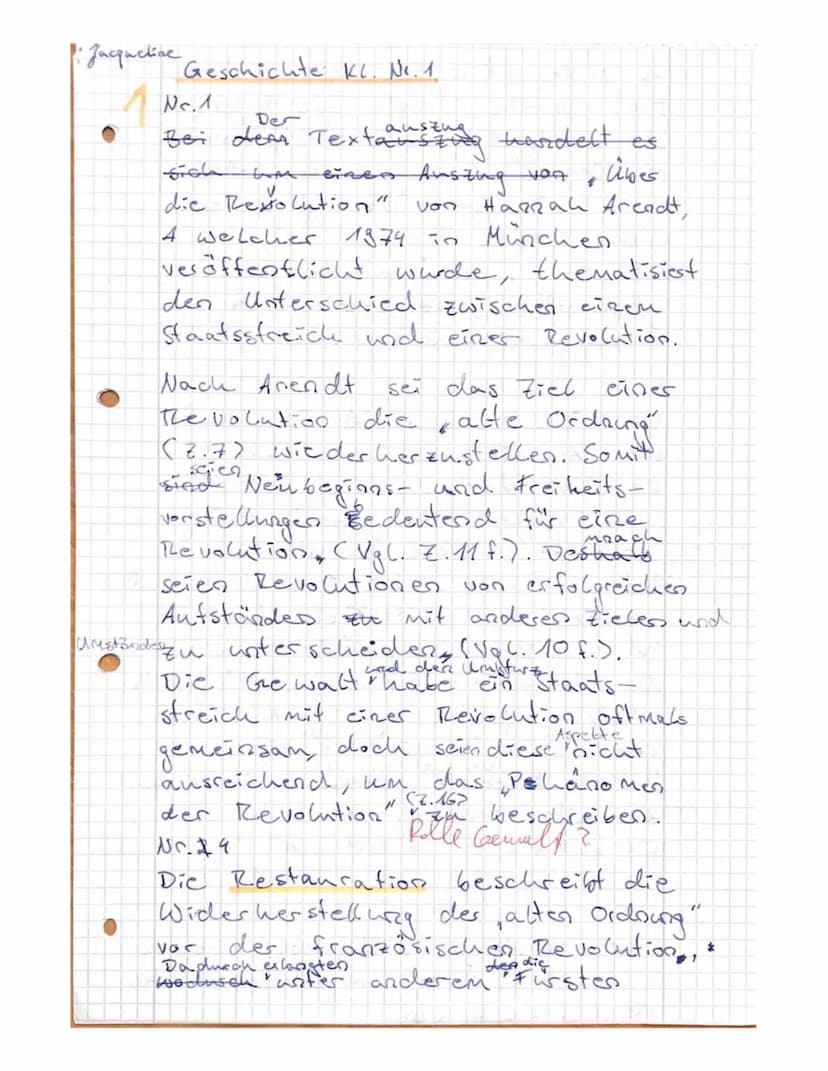 : Jacqueline
Geschichte Kl. Nr. 1
1
Nr. 1
Der auszug
Bei dem Textauszug handelt es
sich um einen Auszug von „Über
die Revolution" von Hannah Arendt,
welcher 1974 in München
veröffentlicht wurde, thematisiert
den Unterschied zwischen einem
Staatsstreich und einer Revolution.
Nach Arendt sei das Ziel einer
Revolution die „alte Ordnung"
(Z.7) wiederherzustellen. Somit
seien
sind Neubeginns- und Freiheits-
vorstellungen bedeutend für eine
Revolution. (Vgl. Z.11 f.). Deshalb
seien Revolutionen von erfolgreichen
Aufständen zu mit anderen Zielen und
Umständen zu unterscheiden. (Vgl. 10 f.).
und der Umsturz
Die Gewalt habe ein Staats-
streich mit einer Revolution oftmals
Aspekte
gemeinsam, doch seien diese nicht
ausreichend, um das „Phänomen
(Z.16)
der Revolution" zu beschreiben.
Rolle Gewalt?
Nr. 4
Die Restauration beschreibt die
Widerherstellung der „alten Ordnung"
vor der französischen Revolution., *
Dadurch erlangten den die
wodurch unter anderem Fürsten